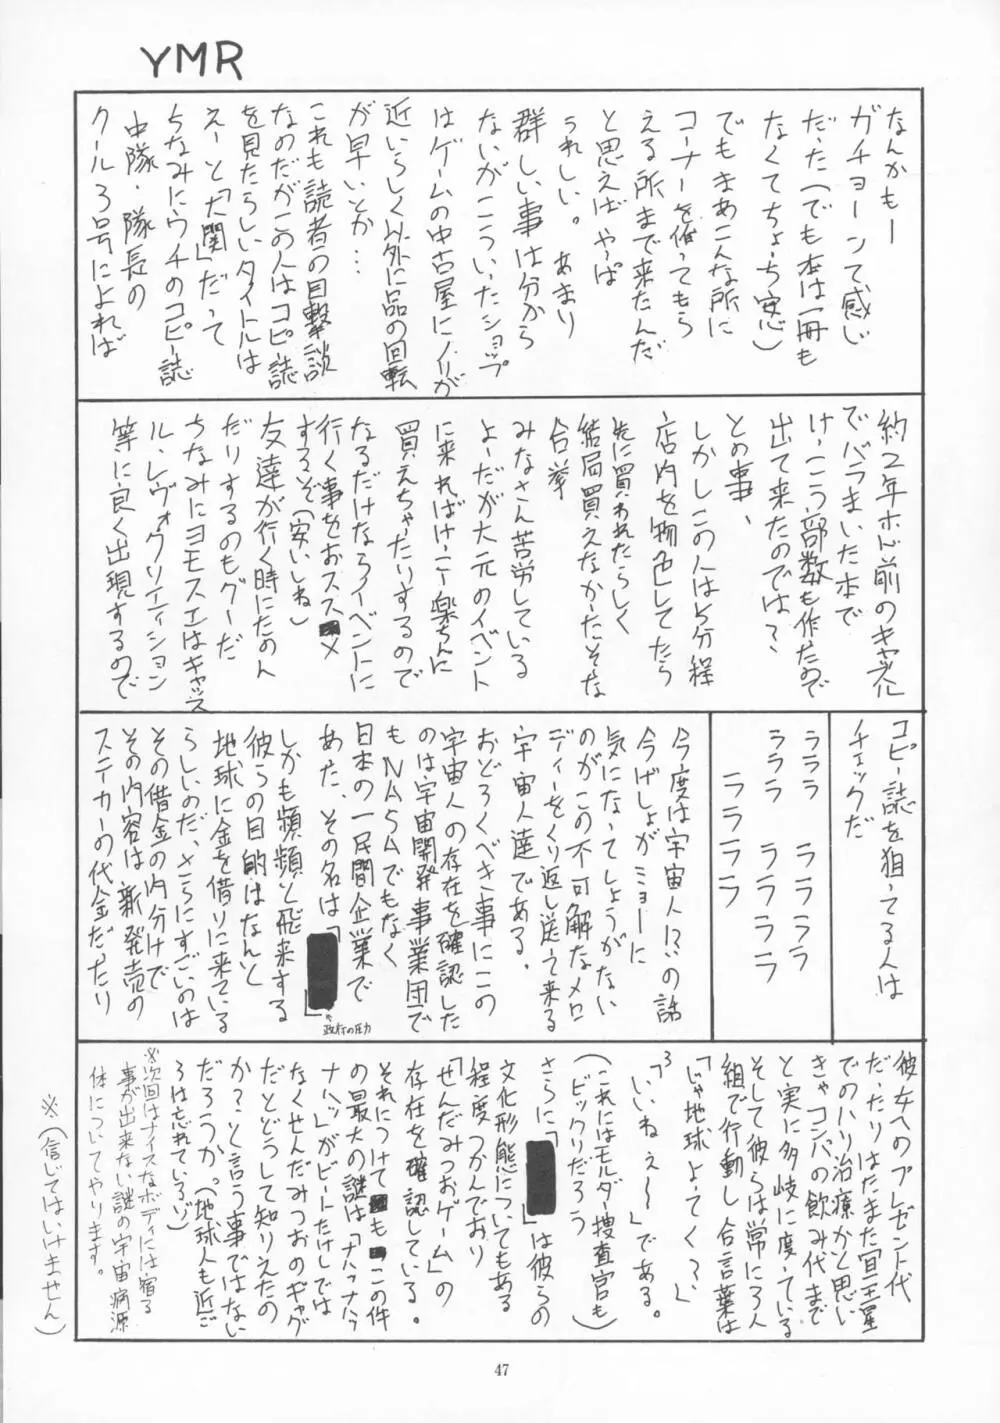 YMR
なんかもー
ガチョーンて感じ
だった(でも本は一冊も
なくてちょっち安心)
でもまあこんな所に
コーナーを作ってもら
える所まで来たんだ
と思えばやっぱ
うれしい。あまり
群しい事は分から
ないがこういったショップ
はゲームの中古屋にノリが
近いらしく以外に品の回転
が早いとか…
これも読者の目撃談
なのだがこの人はコピー誌
を見たらしいタイトルは
えーと「大関」だって
ちなみにウチのコピー誌
中隊・隊長の
クール3号によれば
約2年ホド前のキャメル
でバラまいた本で
けっこう部数も作ったので
出て来たのでは?
との事、
しかしこの人は5分程
店内を物色してたら
先に買われたらしく
結局買えなかったそな
合挙
みなさん苦労している
よーだが大元のイベント
に来ればけっこー楽ちんに
買えちゃたりするので
なるだけならイベントに
行く事をおススメ
するぞ(安いしね)
友達が行く時にたのん
だりするのもグーだ
ちなみにヨモスエはキャッス
ル、レヴォ、クリエイション
等に良く出現するので
コピー誌を狙ってる人は
チェックだ
ラララ ララララ
ラララ ララララ
ララララ
今度は宇宙人!?の話
今げしょがミョーに
気になってしょうがない
のがこの不可解なメロ
ディーをくり返し送って来る
宇宙人達である。
おどろくべき事にこの
宇宙人の存在を確認した
のは宇宙開発事業団で
もNASAでもなく
日本の一民間企業で
あた、その名は「
」
政府の圧力
しかも頻頻と飛来する
彼らの目的はなんと
地球に金を借りに来ている
らしいのだ、さらにすごいのは
その借金の内分けで
その内容は新発売の
ステイカーの代金だったり
彼女へのプレゼント代
だったりはたまた冥王星
でのハリ治療かと思い
きゃコンパの飲み代まで
と実に多岐に度っている
そして彼らは常に3人
組で行動し合言葉は
「じゃ地球よってく?」
3「いいねぇ〜」である。
(これにはモルダー捜査官も
ビックリだろう
さらに「
」は彼らの
文化形態についてもある
程度つかんでおり
「せんだみつおゲーム」の
存在を確認している。
それにつけても この件
の最大の謎は「ナハナハ
ナハッ」がビートたけしでは
なくせんだみつおのギャグ
だとどうして知りえたの
か?と言う事ではない
だろうか。(地球人も近ご
ろは忘れているゾ)
※次回はナイスなボディには宿る
事が出来ない謎の宇宙病源
体についてやります。
※(信じてはいけません)
47